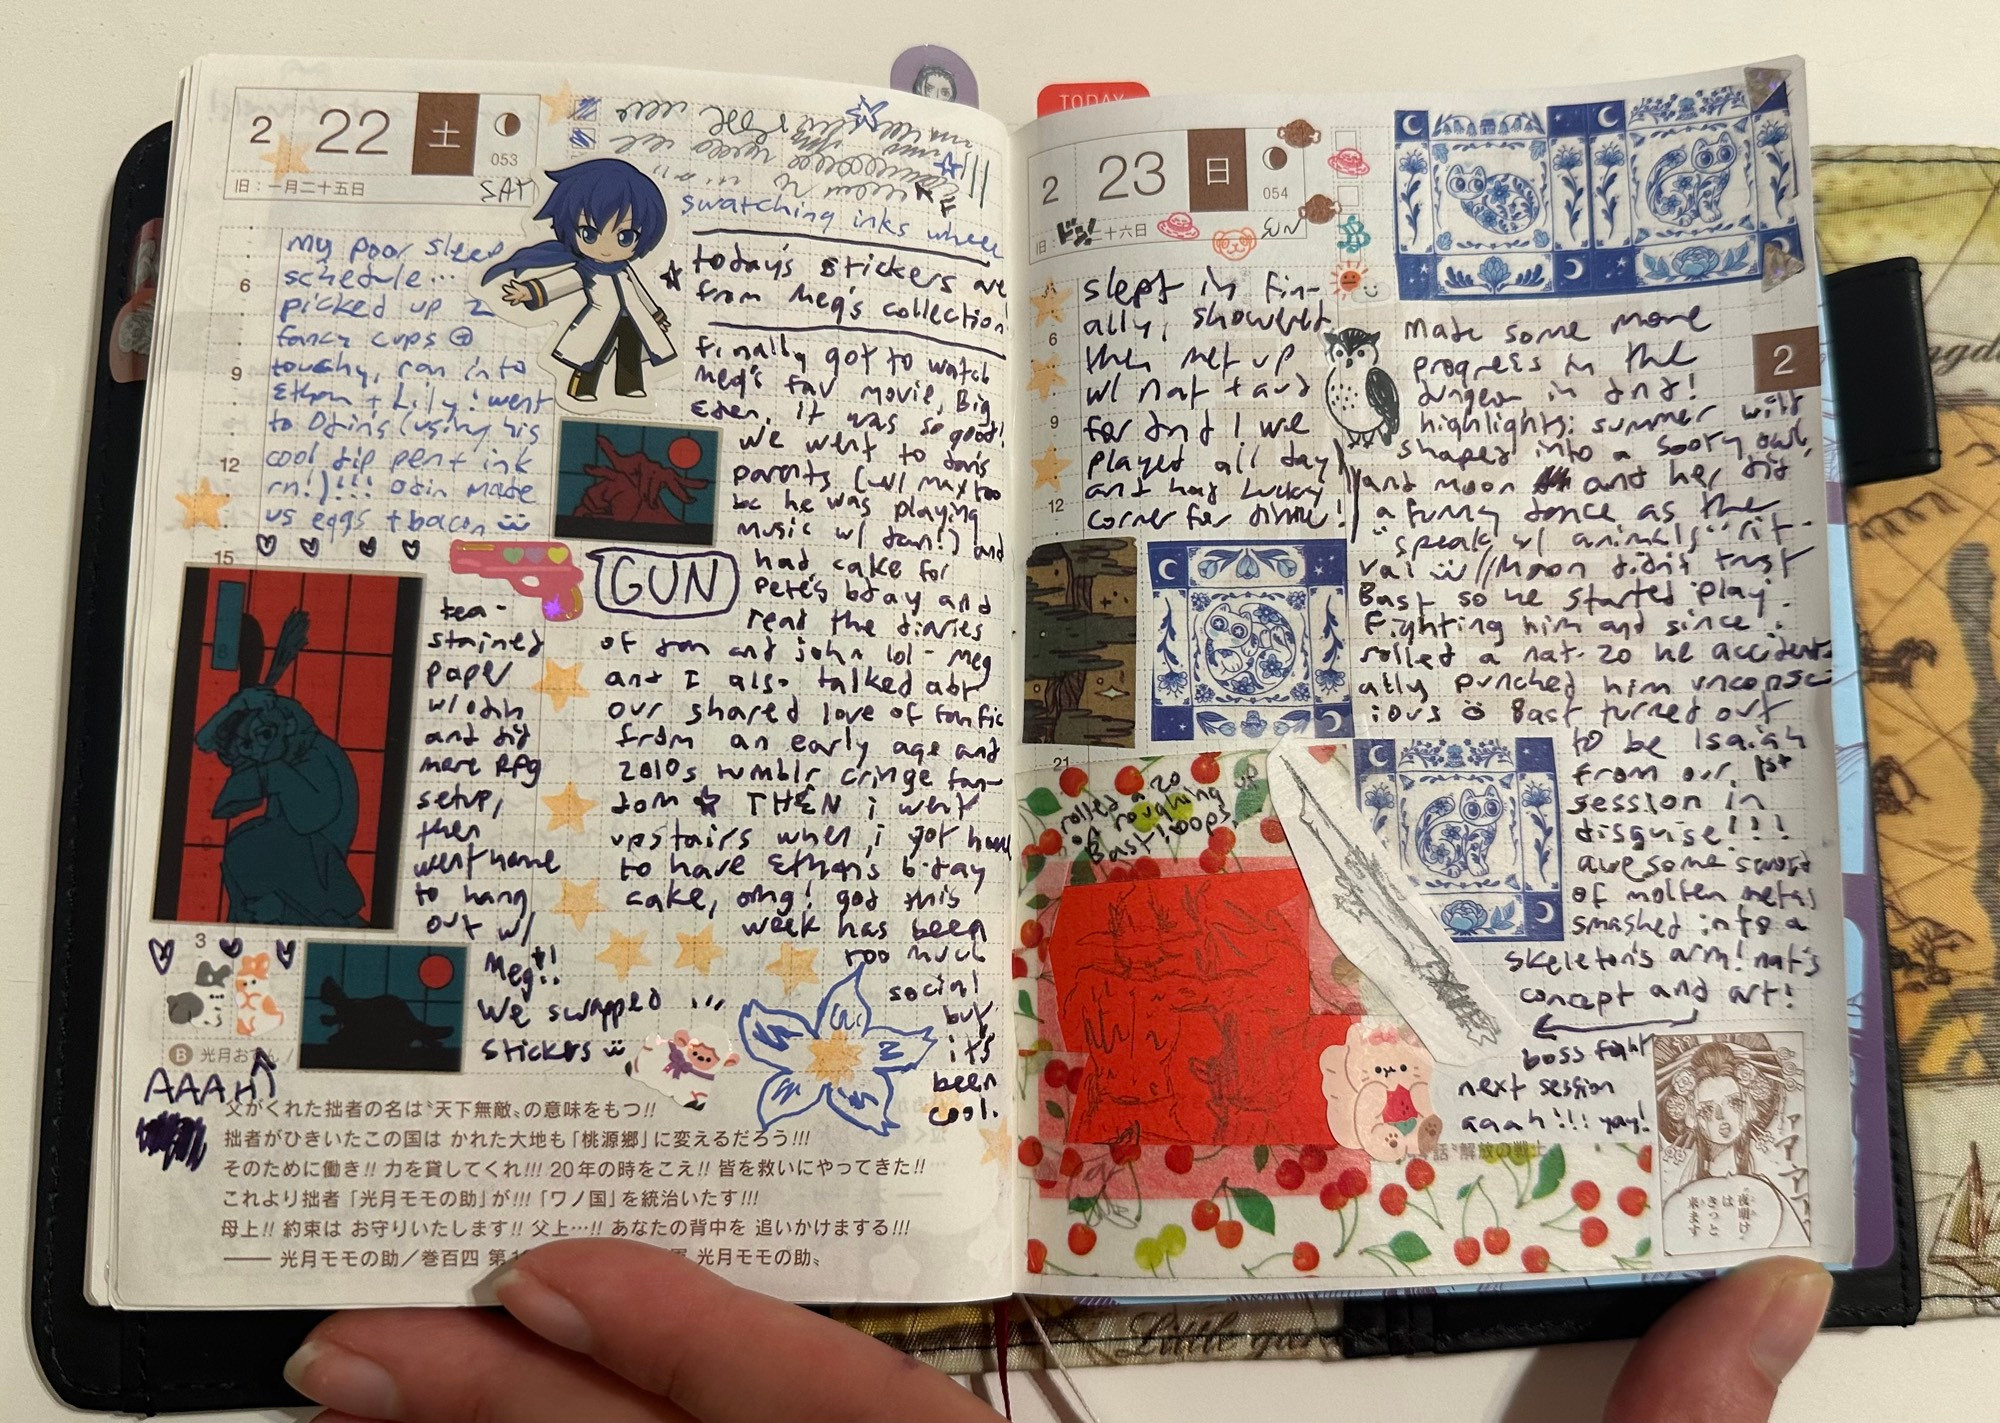 2 22 土
053
旧：一月二十五日
SAT
swatching inks wheee
my poor sleep
schedule...
picked up 2
fancy cups @
toushy, ran into
Ethan + Lily! went
to Odin's (using his
cool dip pen + ink
rn!)!!! Odin made
us eggs + bacon
today's stickers are
from Meg's collection!
finally got to watch
Meg's fav movie, Big
Eden, it was so good!
we went to dan's
parents (w/ max too
bc he was playing
music w/ dan!) and
had cake for
Pete's bday and
read the diaries
of dan and john lol - Meg
and I also talked abt
our shared love of fanfic
from an early age and
2010s tumblr cringe fan-
dom ☆ THEN i went
upstairs when i got home
to have Ethan's bday
cake, omg! god this
week has been
too much
social
but
it's
been
cool.
GUN
6
9
12
15
tea-
stained
paper
w/ odin
and did
more RPG
setup,
then
went home
to hang
out w/
Meg!!
we swapped
stickers
3
Ⓑ 光月おでん /
AAAH
父がくれた拙者の名は〝天下無敵〟の意味をもつ!!
拙者がひきいたこの国は かれた大地も「桃源郷」に変えるだろう!!!
そのために働き!! 力を貸してくれ!!! 20年の時をこえ!! 皆を救いにやってきた!!
これより拙者 「光月モモの助」が!!! 「ワノ国」を統治いたす!!!
母上!! 約束は お守りいたします!! 父上…!! あなたの背中を 追いかけまする!!!
—— 光月モモの助／巻百四 第
光月モモの助〟
TODAY
2 23 日
054
旧：
二十六日
ドン!
SUN
slept in fin-
ally, showered
then met up
w/ nat + aud
for dnd! we
played all day
and had Lucky
Corner for dinner!
6
9
12
21
2
made some more
progress in the
dungeon in dnd!
highlights: summer wild
shaped into a sooty owl,
and moon and her did
a funny dance as the
"speak w/ animals" rit-
ual // Moon didn't trust
Bast so he started play
fighting him and since
rolled a nat-20 he accident-
ally punched him unconsc-
ious Bast turned out
to be Isaiah
from our 1st
session in
disguise!!!
awesome sword
of molten metal
smashed into a
skeleton's arm! nat's
concept and art!
boss fight
next session
aaah!!! yay!
話〝解放の戦士
〝夜明け〟
は
きっと
来ます
アアアア
Little garden